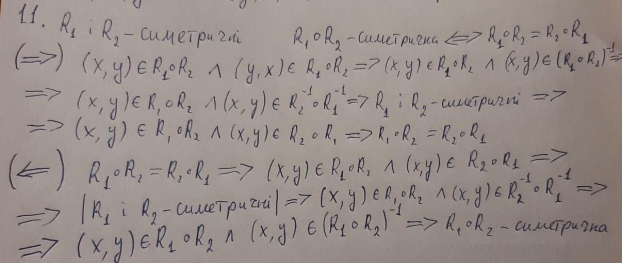 11. R₁ і R₂ - симетричні R₁∘R₂ - симетрична <=> R₁∘R₂ = R₂∘R₁
(=>) (x, y) ∈ R₁∘R₂ ∧ (y, x) ∈ R₁∘R₂ => (x, y) ∈ R₁∘R₂ ∧ (x, y) ∈ (R₁∘R₂)⁻¹ =>
=> (x, y) ∈ R₁∘R₂ ∧ (x, y) ∈ R₂⁻¹∘R₁⁻¹ => R₁ і R₂ - симетричні =>
=> (x, y) ∈ R₁∘R₂ ∧ (x, y) ∈ R₂∘R₁ => R₁∘R₂ = R₂∘R₁
(<=) R₁∘R₂ = R₂∘R₁ => (x, y) ∈ R₁∘R₂ ∧ (x, y) ∈ R₂∘R₁ =>
=> |R₁ і R₂ - симетричні| => (x, y) ∈ R₁∘R₂ ∧ (x, y) ∈ R₂⁻¹∘R₁⁻¹ =>
=> (x, y) ∈ R₁∘R₂ ∧ (x, y) ∈ (R₁∘R₂)⁻¹ => R₁∘R₂ - симетрична